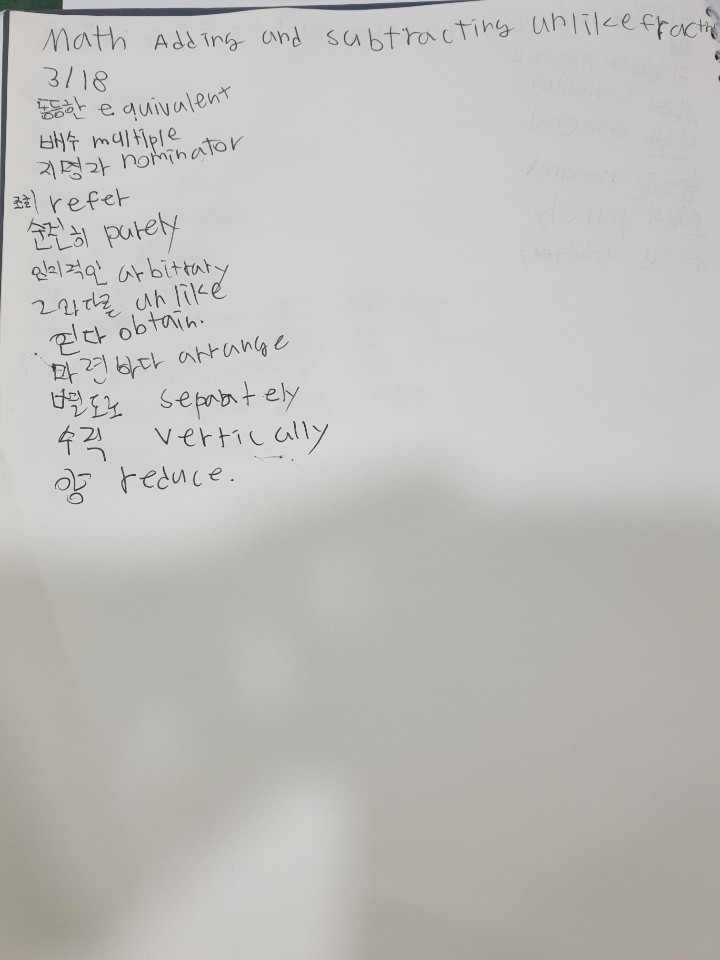 Math Adding and subtracting unlike fractn
3/18
동등한 equivalent
배수 multiple
지명자 nominator
조회 refer
순전히 purely
임의적인 arbitrary
그와다른 unlike
얻다 obtain.
마련하다 arrange
별도로 separately
수직 vertically
양 reduce.